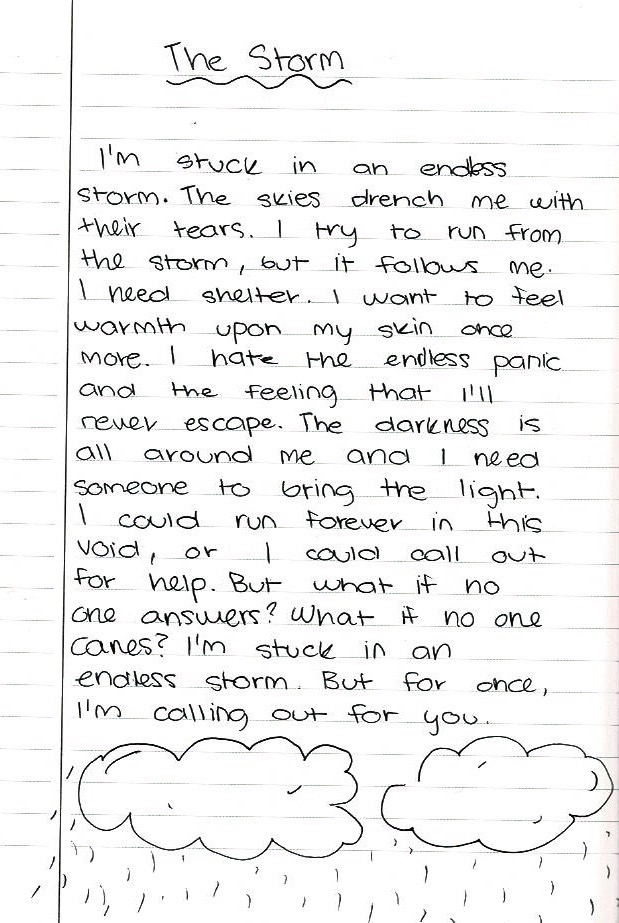 The Storm
I'm stuck in an endless
storm. The skies drench me with
their tears. I try to run from
the storm, but it follows me.
I need shelter. I want to feel
warmth upon my skin once
more. I hate the endless panic
and the feeling that I'll
never escape. The darkness is
all around me and I need
someone to bring the light.
I could run forever in this
void, or I could call out
for help. But what if no
one answers? What if no one
cares? I'm stuck in an
endless storm. But for once,
I'm calling out for you.